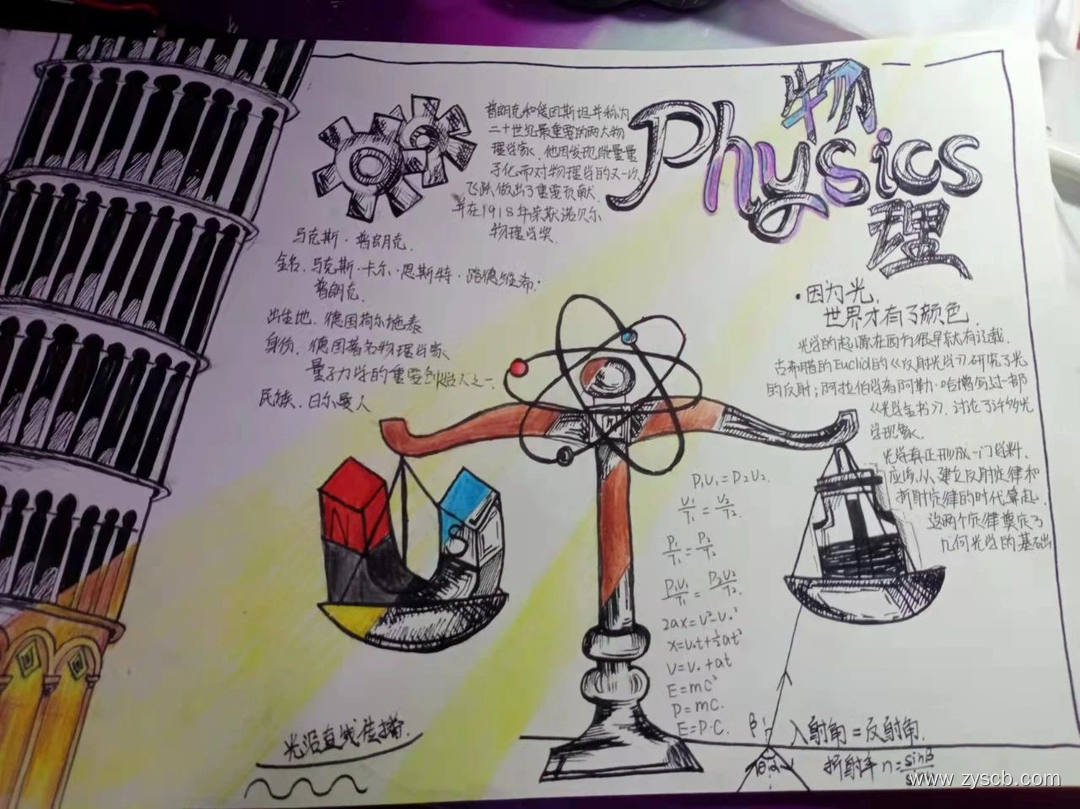 物
Physics
理
普朗克和爱因斯坦并称为
二十世纪最重要的两大物
理学家。他因发现能量量
子化而对物理学的又一次
飞跃做出了重要贡献,
并在1918年荣获诺贝尔
物理学奖。
马克斯·普朗克
全名、马克斯·卡尔·恩斯特·路德维希·
普朗克
出生地、德国荷尔施泰
身份、德国著名物理学家
量子力学的重要创始人之一
民族、日尔曼人
·因为光,
世界才有了颜色
光学的起源在西方很早就有记载,
古希腊的Euclid的《反射光学》研究了光
的反射;阿拉伯学者阿勒·哈增写过一部
《光学全书》,讨论了许多光
学现象。
光学真正形成一门学科,
应该从建立反射定律和
折射定律的时代算起,
这两个定律奠定了
几何光学的基础
N
S
P₁V₁=P₂V₂
V₁/T₁=V₂/T₂
P₁/T₁=P₂/T₂
P₁V₁/T₁=P₂V₂/T₂
2ax=v²-v₀²
x=v₀t+½at²
v=v₀+at
E=mc²
P=mc
E=P·C
光沿直线传播
β
入射角=反射角
折射率n=sinβ/
www.zyscb.com